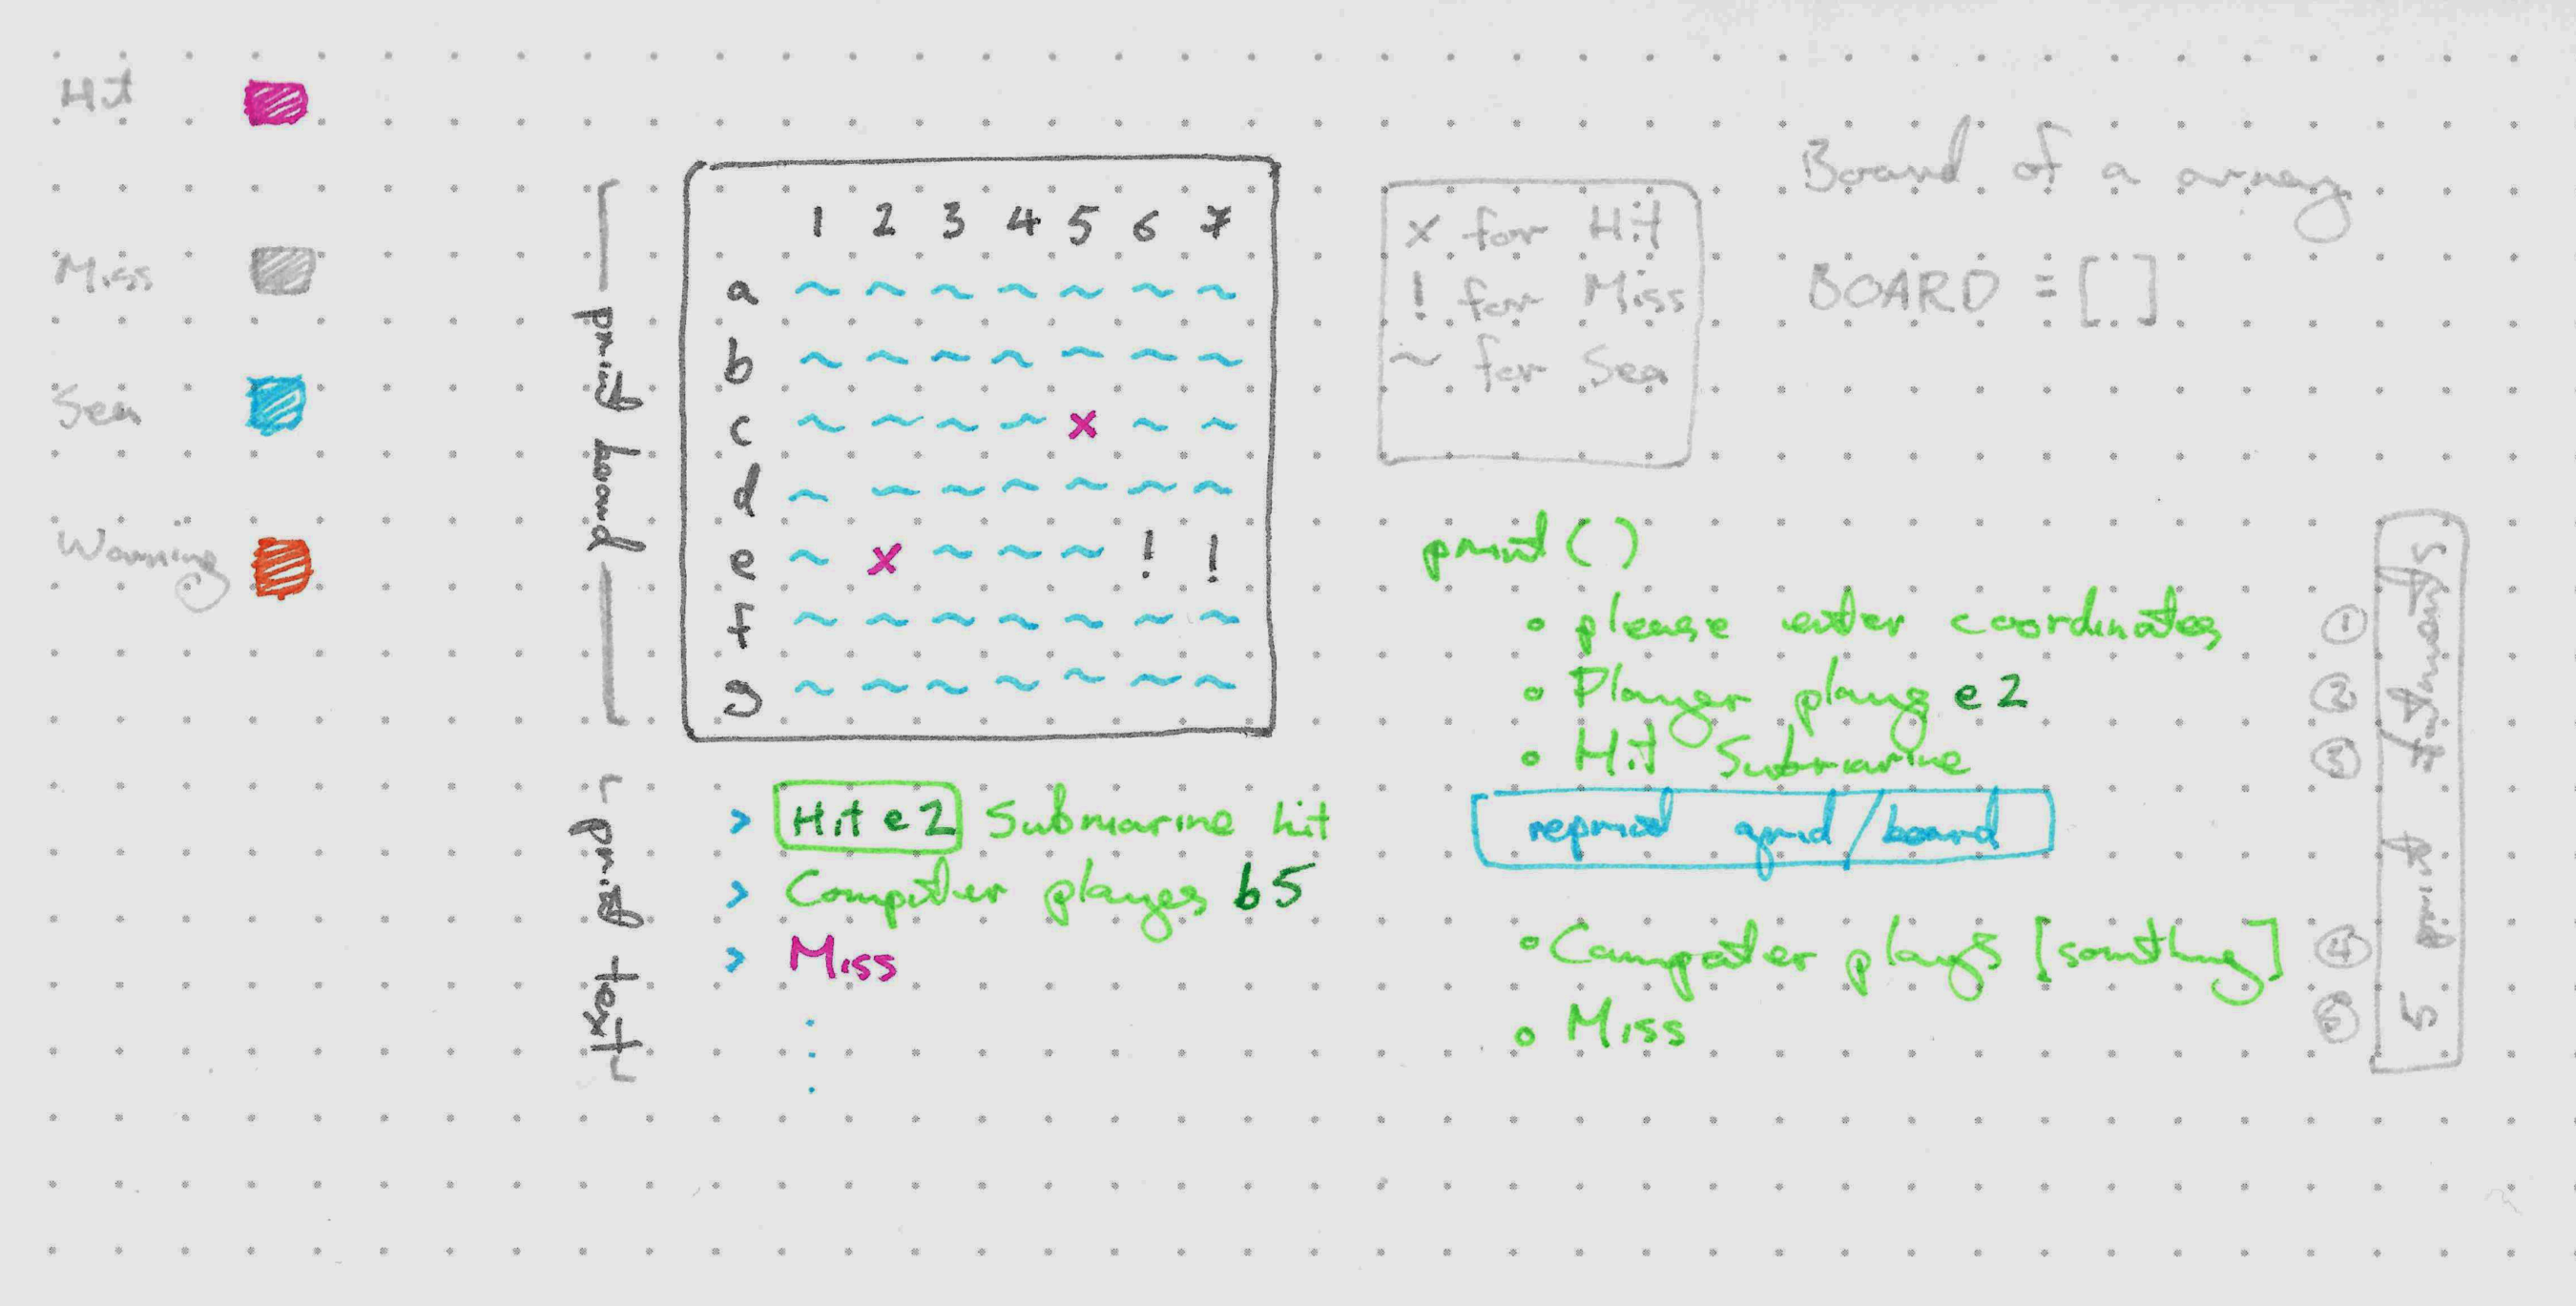 Hit
Miss
Sea
Warning
print board
1 2 3 4 5 6 7
a ~ ~ ~ ~ ~ ~ ~
b ~ ~ ~ ~ ~ ~ ~
c ~ ~ ~ ~ x ~ ~
d ~ ~ ~ ~ ~ ~ ~
e ~ x ~ ~ ~ ! !
f ~ ~ ~ ~ ~ ~ ~
g ~ ~ ~ ~ ~ ~ ~
print text
> Hit e2 Submarine hit
> Computer playes b5
> Miss
x for Hit
! for Miss
~ for Sea
Board of a array
BOARD = [ ]
print ( )
please enter coordinates ①
Player plays e2 ②
Hit Submarine ③
reprint grid/board
Computer plays [somthing] ④
Miss ⑤
5 print statments